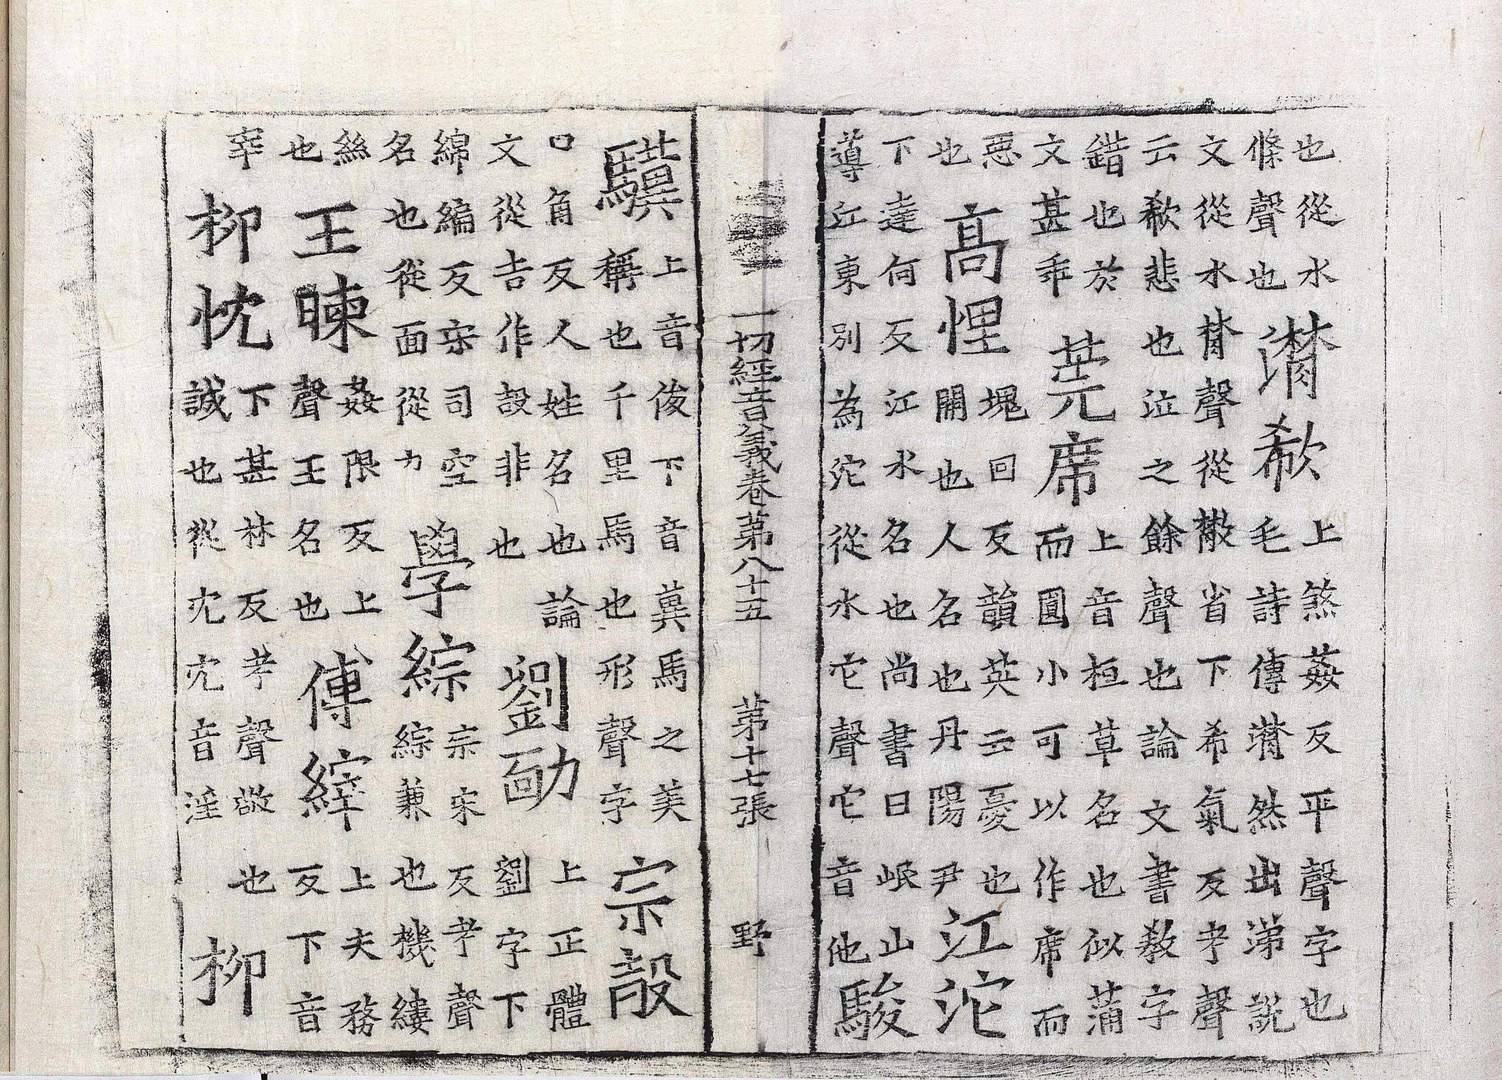 也從水
條聲也
潸欷
上煞姦反平聲字也
毛詩傳潸然出涕說
文從水朁聲從㪔省下希氣反考聲
云欷悲也泣之餘聲也論文書教字
錯也於
文甚乖
莞席
上音桓草名也似蒲
而圓小可以作席而
惡
也
高悝
塊回反韻英云憂也
開也人名也丹陽尹
江沱
下達何反江水名也尚書曰岷山
導江東別為沱從水它聲它音他
駿
一切經音義卷第八十五 第十七張 野
驥
上音俊下音冀馬之美
稱也千里馬也形聲字
宗㱿
口角反人姓名也論
文從吉作設非也
劉勔
上正體
劉字下
綿編反宋司空
名也從面從力
學綜
宗宋反考聲
綜兼也機縷
絲
也
王暕
姦限反上
聲王名也
傅縡
上夫務
反下音
宰
柳忱
下甚林反考聲敬也
誠也從冘冘音淫
柳